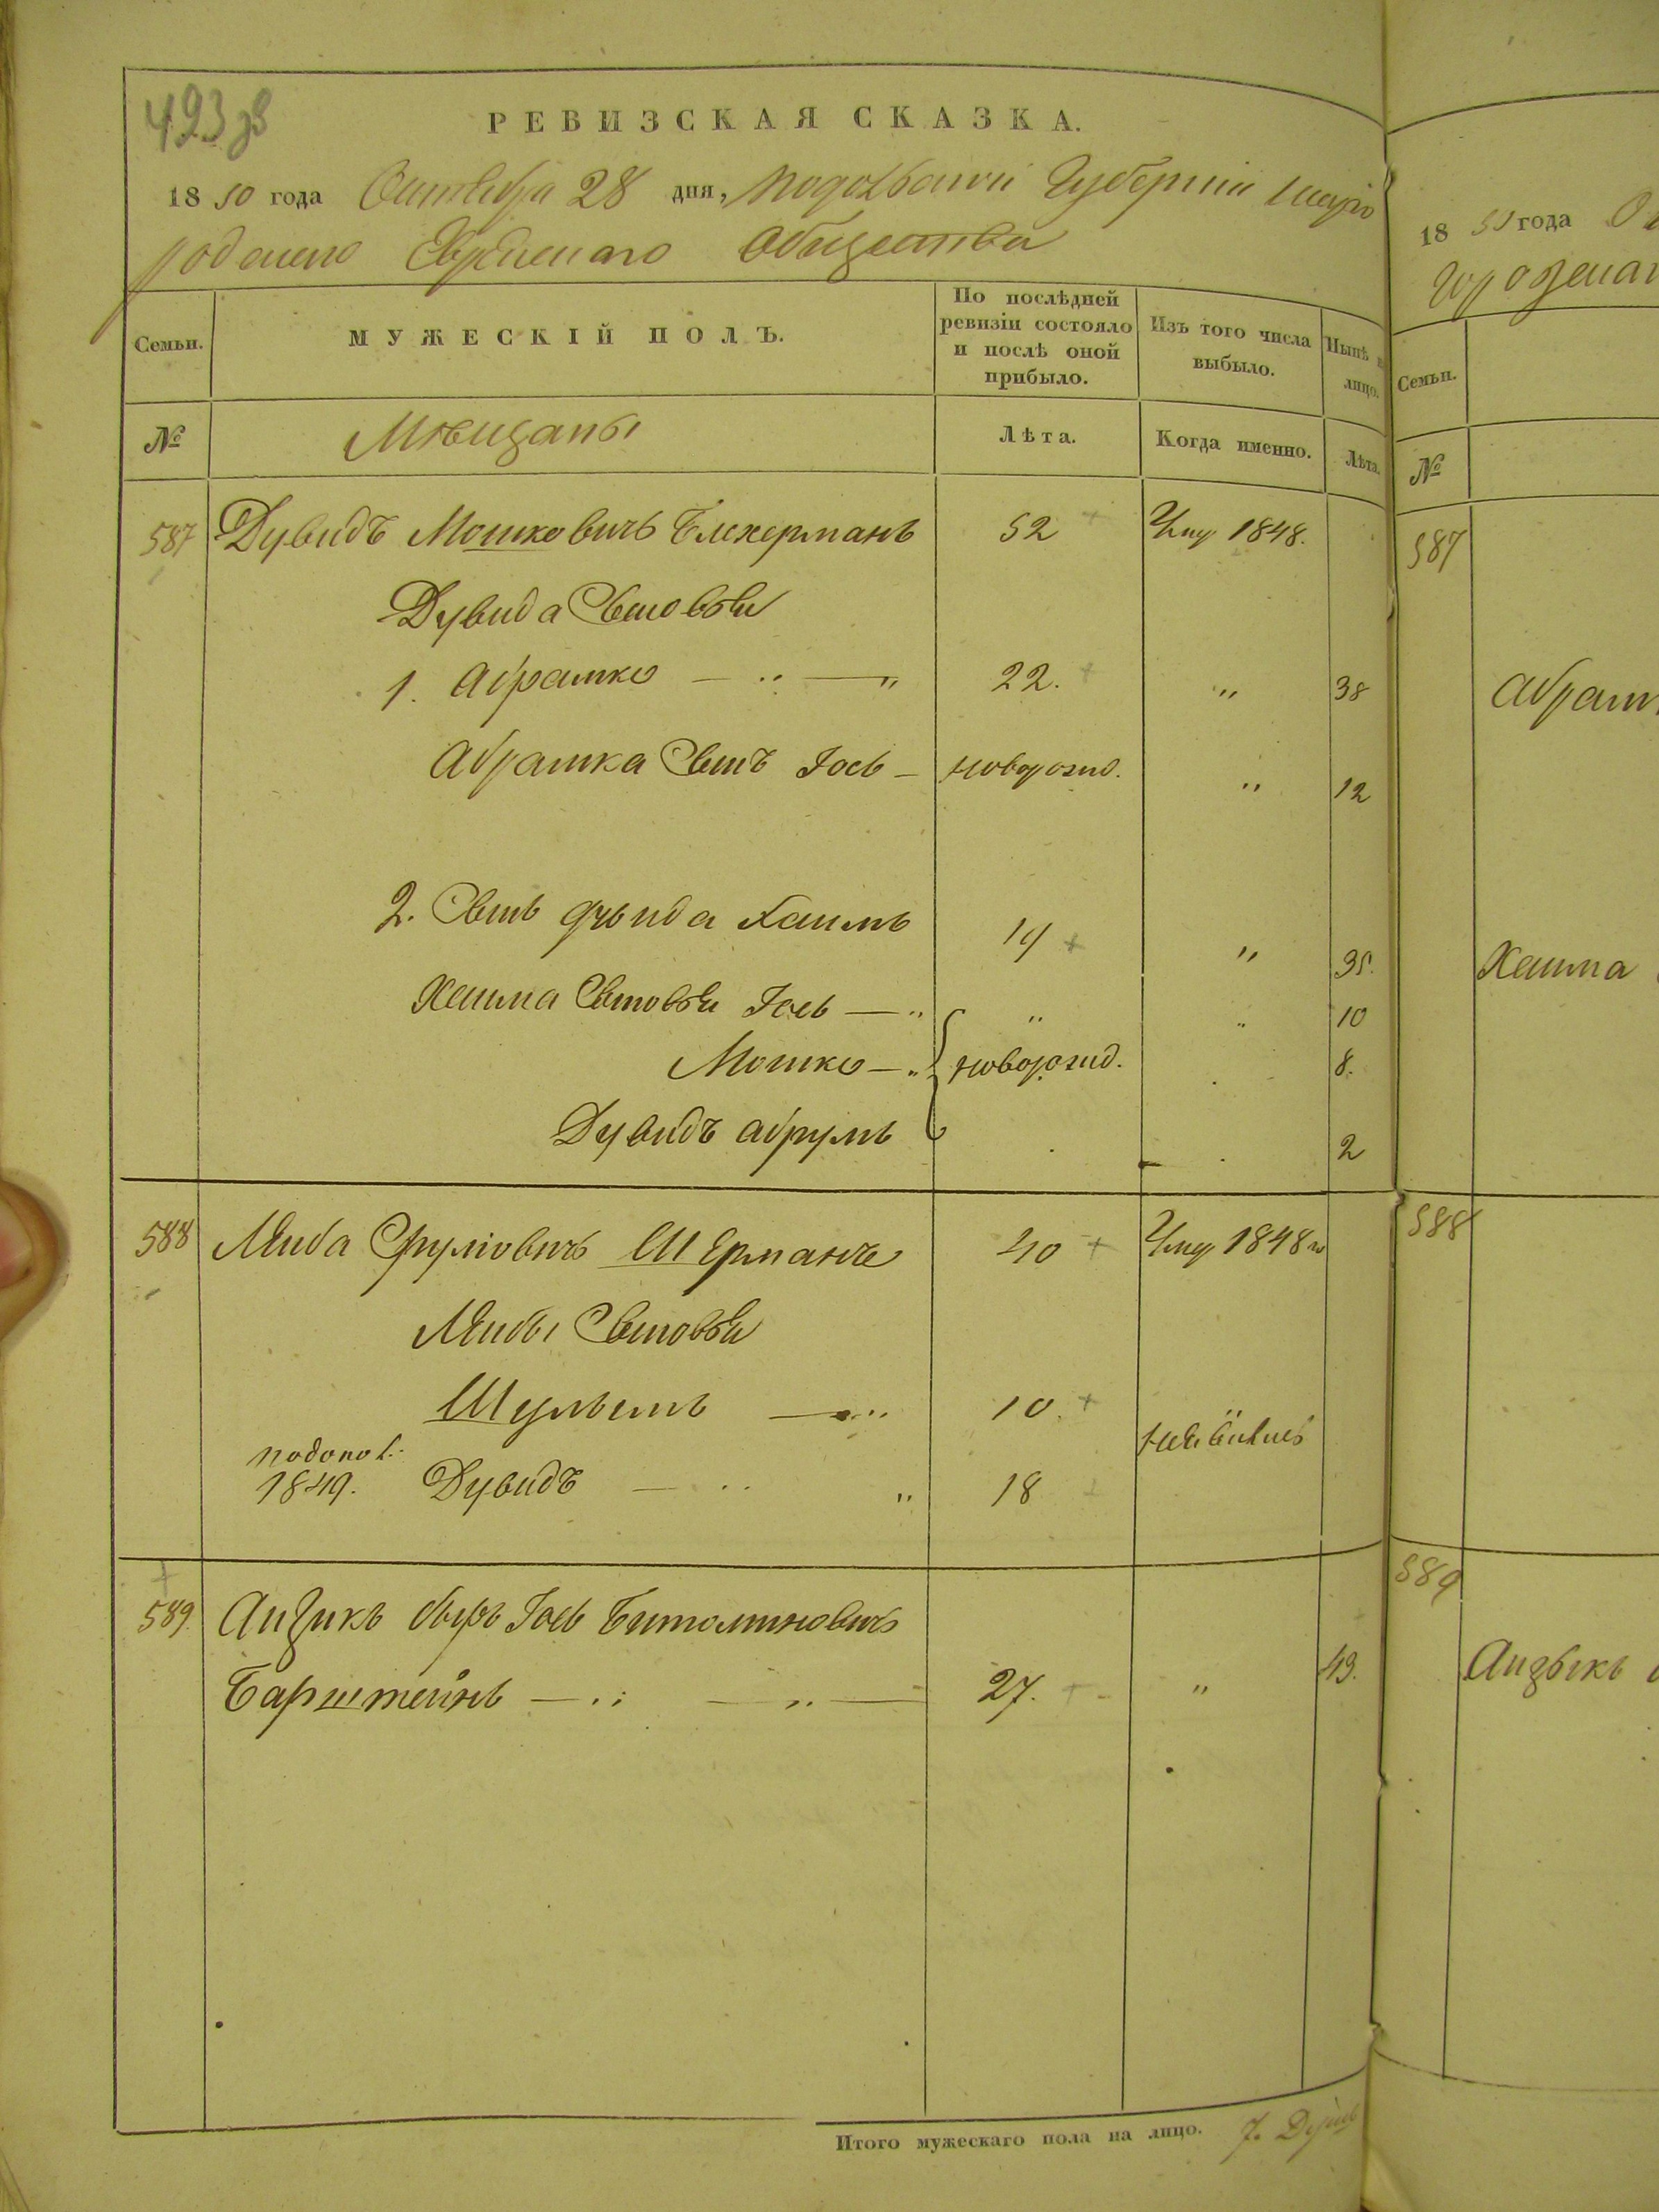 493 об
РЕВИЗСКАЯ СКАЗКА.
1850 года Октября 28 дня, Подольской Губернии Шаро
родского Еврейскаго Общества
Семьи.
МУЖЕСКІЙ ПОЛЪ.
По послѣдней ревизіи состояло и послѣ оной прибыло.
Изъ того числа выбыло.
Нынѣ на лицо.
№
Мѣщаны
Лѣта.
Когда именно.
Лѣта.
587 Дувидъ Мошковичъ Блехерманъ 52 Умер 1848.
Дувида Сыновья
1. Абрамко — " — " 22. " 38
Абрамка Сынъ Іось — новорожд. " 12
2. Сынъ Дувида Хаимъ 19 " 35.
Хаима Сыновья Іось — " " " 10
Мошко — " новорожд. 8.
Дувидъ Абрумъ 2
588 Лейба Сруліовичъ Шерманъ 40 Умер 1848 го
Лейбы Сыновья
Шулымъ — " 10. "
неявился
1849. Дувидъ — " " 18
589. Айзикъ Іось
Барштейнъ — " — " — 27. " 43.
Итого мужескаго пола на лицо. 7. Душъ
1850 года
Семьи.
№
587
Абрам
Хаима
588
589
Айзыкъ